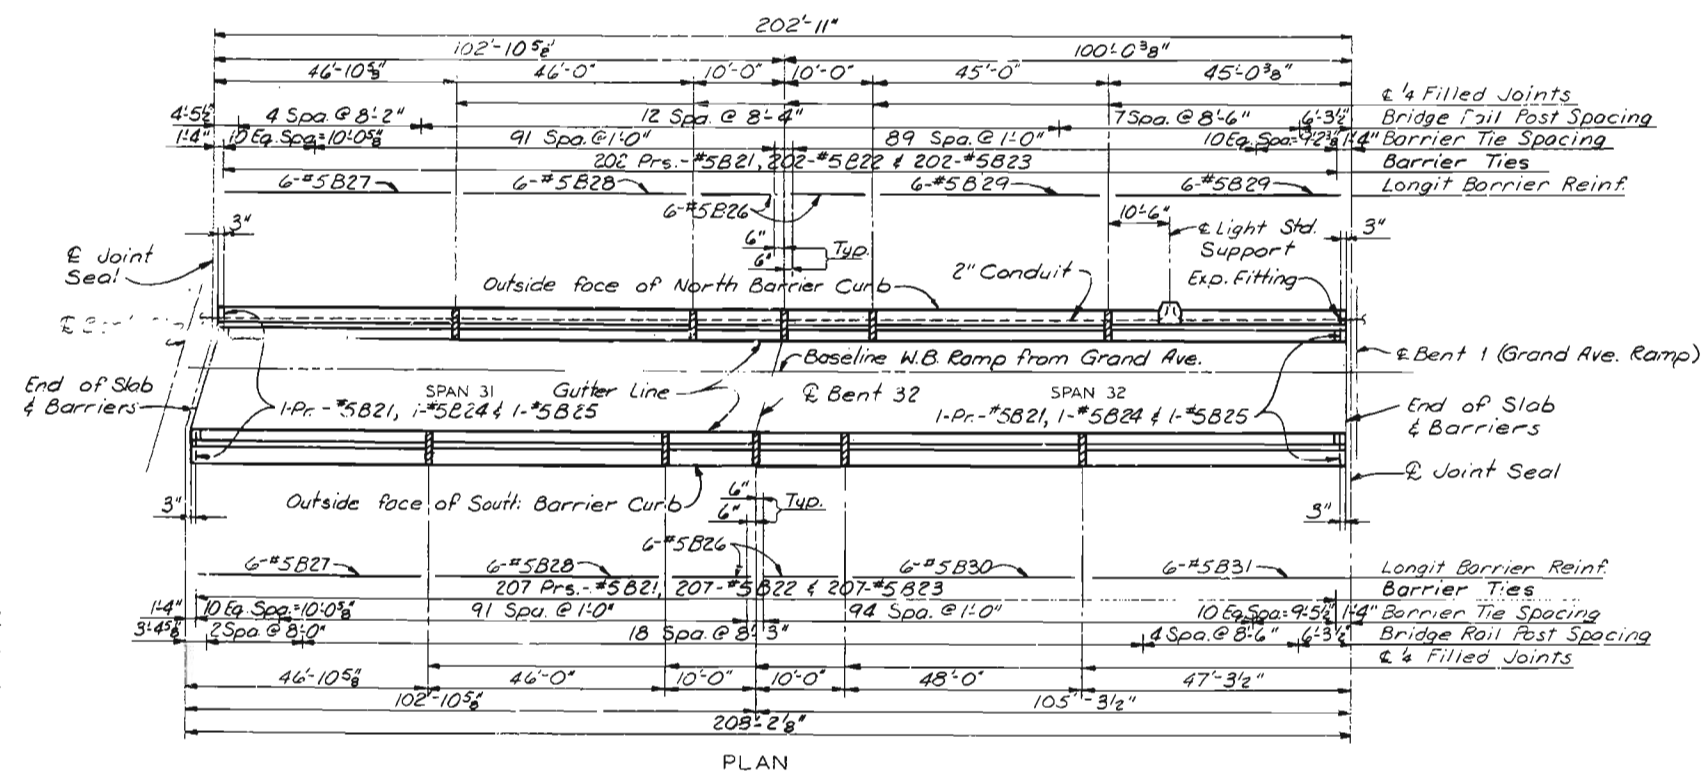 202'-11"
102'-10 5/8" 100'-0 3/8"
46'-10 5/8" 46'-0" 10'-0" 10'-0" 45'-0" 45'-0 3/8"
℄ 1/4 Filled Joints
4'-5 1/2" 4 Spa. @ 8'-2" 12 Spa. @ 8'-4" 7 Spa. @ 8'-6" 6'-3 1/2" Bridge Rail Post Spacing
1'-4" 10 Eq. Spa.=10'-0 5/8" 91 Spa. @ 1'-0" 89 Spa. @ 1'-0" 10 Eq. Spa.=9'-2 3/8" 1'-4" Barrier Tie Spacing
202 Prs.-#5B21, 202-#5B22 & 202-#5B23 Barrier Ties
6-#5B27 6-#5B28 6-#5B29 6-#5B29 Longit Barrier Reinf.
6-#5B26
3" 10'-6" 3"
℄ Light Std.
Support
6" Typ.
6"
℄ Joint
Seal
2" Conduit Exp. Fitting
Outside face of North Barrier Curb
℄
Baseline W.B. Ramp from Grand Ave. ℄ Bent 1 (Grand Ave. Ramp)
End of Slab
& Barriers
SPAN 31 Gutter Line ℄ Bent 32 SPAN 32
1-Pr.-#5B21, 1-#5B24 & 1-#5B25 1-Pr.-#5B21, 1-#5B24 & 1-#5B25
End of Slab
& Barriers
℄ Joint Seal
Outside face of South Barrier Curb
3" 6" Typ. 3"
6"
6-#5B26
6-#5B27 6-#5B28 6-#5B30 6-#5B31 Longit Barrier Reinf.
207 Prs.-#5B21, 207-#5B22 & 207-#5B23 Barrier Ties
1'-4" 10 Eq. Spa.=10'-0 5/8" 91 Spa. @ 1'-0" 94 Spa. @ 1'-0" 10 Eq. Spa.=9'-5 1/2" 1'-4" Barrier Tie Spacing
3'-4 5/8" 2 Spa. @ 8'-0" 18 Spa. @ 8'-3" 4 Spa. @ 8'-6" 6'-3 1/2" Bridge Rail Post Spacing
℄ 1/4 Filled Joints
46'-10 5/8" 46'-0" 10'-0" 10'-0" 48'-0" 47'-3 1/2"
102'-10 5/8" 105'-3 1/2"
208'-2 1/8"
PLAN